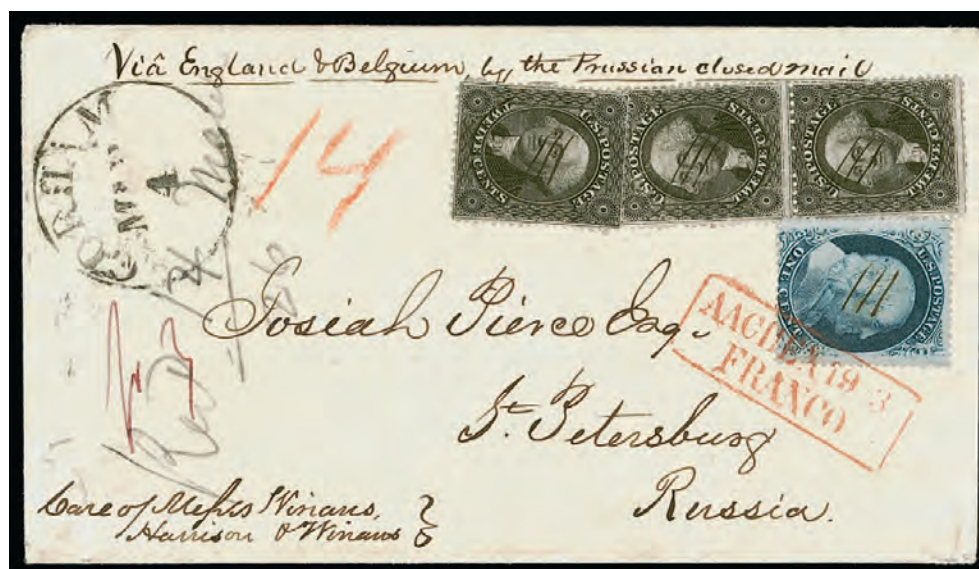 Viâ England & Belgium, by the Prussian closed mail
GORHAM
4
14
U.S. POSTAGE
TWELVE CENTS
U.S. POSTAGE
TWELVE CENTS
U.S. POSTAGE
TWELVE CENTS
U.S. POSTAGE
ONE CENT
Josiah Pierce Esq.
AACHEN 19 3
FRANCO
St. Petersburg
Russia.
Care of Messrs Winans,
Harrison & Winans